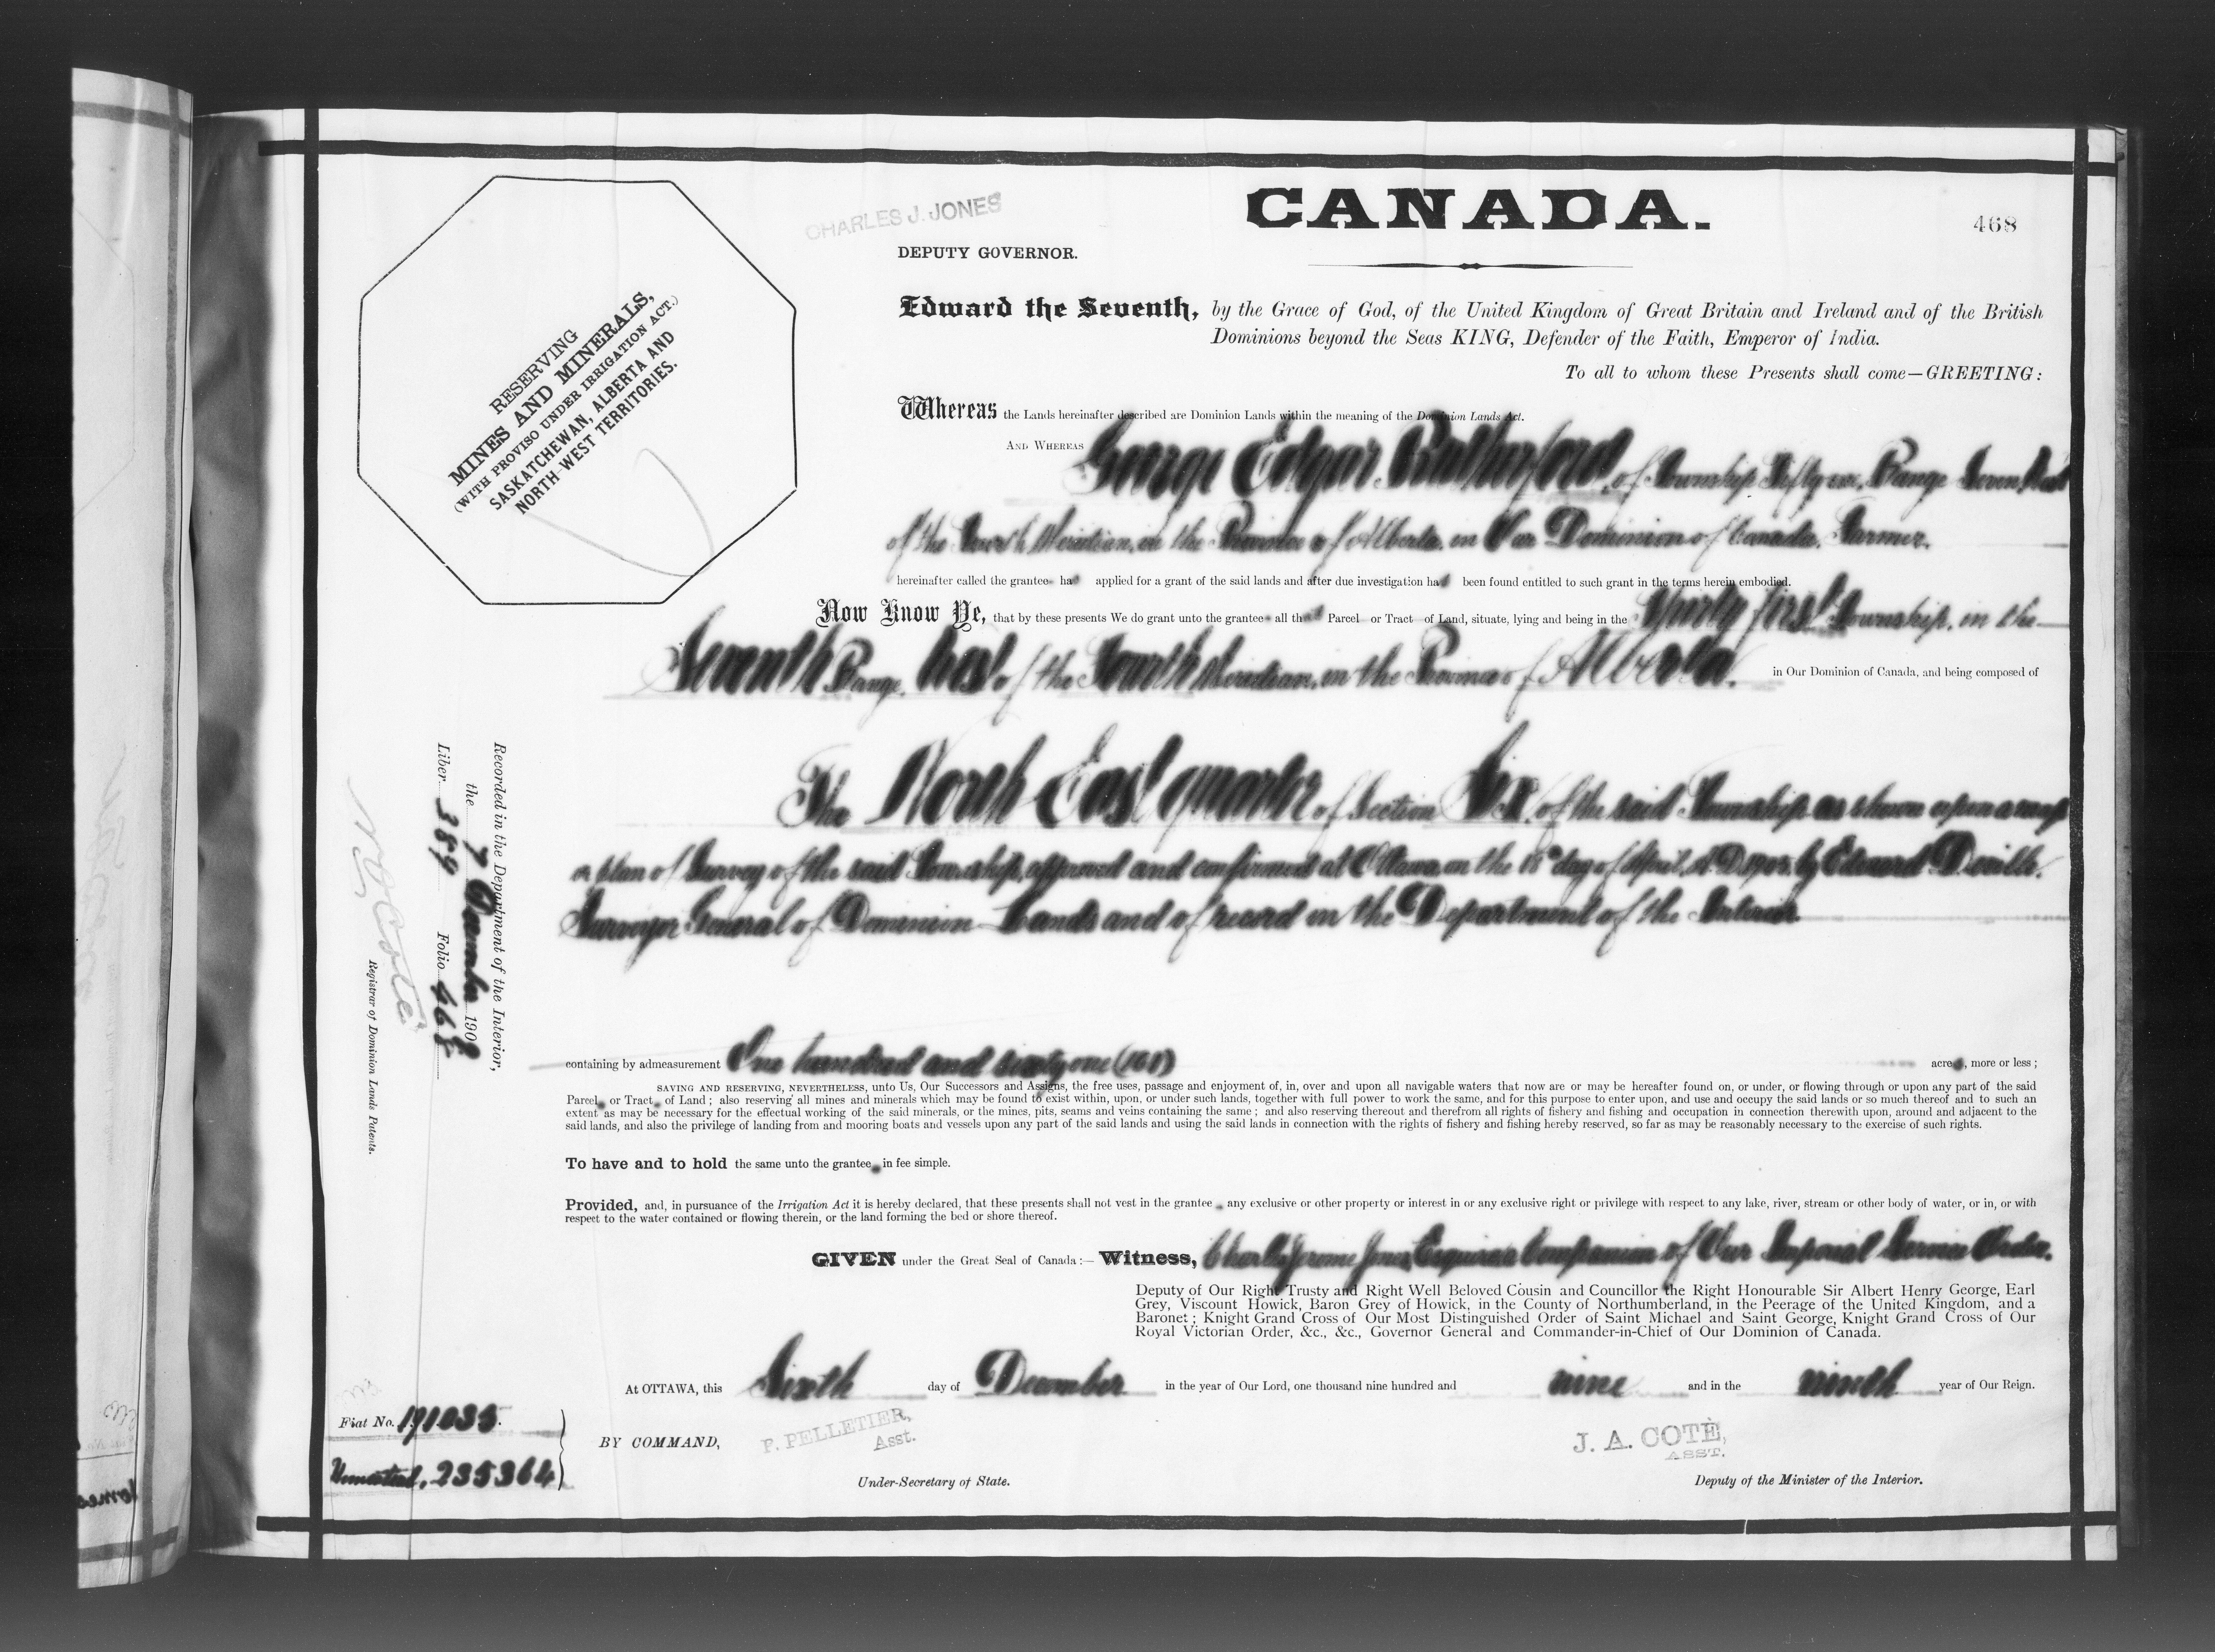 CHARLES J. JONES
CANADA.
468
DEPUTY GOVERNOR.
Edward the Seventh, by the Grace of God, of the United Kingdom of Great Britain and Ireland and of the British
Dominions beyond the Seas KING, Defender of the Faith, Emperor of India.
To all to whom these Presents shall come—GREETING:
RESERVING
MINES AND MINERALS,
(WITH PROVISO UNDER IRRIGATION ACT.)
SASKATCHEWAN, ALBERTA AND
NORTH-WEST TERRITORIES.
Whereas the Lands hereinafter described are Dominion Lands within the meaning of the Dominion Lands Act.
AND WHEREAS George Edgar Rutherford, of Township Range Seven, West
of the Fourth Meridian, in the Province of Alberta, in Our Dominion of Canada, Farmer.
hereinafter called the grantee has applied for a grant of the said lands and after due investigation has been found entitled to such grant in the terms herein embodied.
Now Know Ye, that by these presents We do grant unto the grantee all that Parcel or Tract of Land, situate, lying and being in the Thirty first Township, in the
Seventh Range, West of the Fourth Meridian, in the Province of Alberta, in Our Dominion of Canada, and being composed of
The North East quarter of Section Six, of the said Township as shown upon a map
or plan of Survey of the said Township, approved and confirmed at Ottawa, on the day of April, A.D. by Edouard Deville,
Surveyor General of Dominion Lands and of record in the Department of the Interior.
Recorded in the Department of the Interior,
the 7 December 1909
Liber 389 Folio 468
N O Coté
Registrar of Dominion Lands Patents.
containing by admeasurement One hundred and sixty one (161) acres, more or less;
SAVING AND RESERVING, NEVERTHELESS, unto Us, Our Successors and Assigns, the free uses, passage and enjoyment of, in, over and upon all navigable waters that now are or may be hereafter found on, or under, or flowing through or upon any part of the said
Parcel or Tract of Land; also reserving all mines and minerals which may be found to exist within, upon, or under such lands, together with full power to work the same, and for this purpose to enter upon, and use and occupy the said lands or so much thereof and to such an
extent as may be necessary for the effectual working of the said minerals, or the mines, pits, seams and veins containing the same; and also reserving thereout and therefrom all rights of fishery and fishing and occupation in connection therewith upon, around and adjacent to the
said lands, and also the privilege of landing from and mooring boats and vessels upon any part of the said lands and using the said lands in connection with the rights of fishery and fishing hereby reserved, so far as may be reasonably necessary to the exercise of such rights.
To have and to hold the same unto the grantee in fee simple.
Provided, and, in pursuance of the Irrigation Act it is hereby declared, that these presents shall not vest in the grantee any exclusive or other property or interest in or any exclusive right or privilege with respect to any lake, river, stream or other body of water, or in, or with
respect to the water contained or flowing therein, or the land forming the bed or shore thereof.
GIVEN under the Great Seal of Canada:— Witness, Charles Jerome Jones, Esquire, a Companion of Our Imperial Service Order,
Deputy of Our Right Trusty and Right Well Beloved Cousin and Councillor the Right Honourable Sir Albert Henry George, Earl
Grey, Viscount Howick, Baron Grey of Howick, in the County of Northumberland, in the Peerage of the United Kingdom, and a
Baronet; Knight Grand Cross of Our Most Distinguished Order of Saint Michael and Saint George, Knight Grand Cross of Our
Royal Victorian Order, &c., &c., Governor General and Commander-in-Chief of Our Dominion of Canada.
At OTTAWA, this Sixth day of December in the year of Our Lord, one thousand nine hundred and nine and in the ninth year of Our Reign.
Fiat No. 191035.
Homestead, 235364
BY COMMAND,
P. PELLETIER,
Asst.
Under-Secretary of State.
J. A. COTÉ,
ASST.
Deputy of the Minister of the Interior.